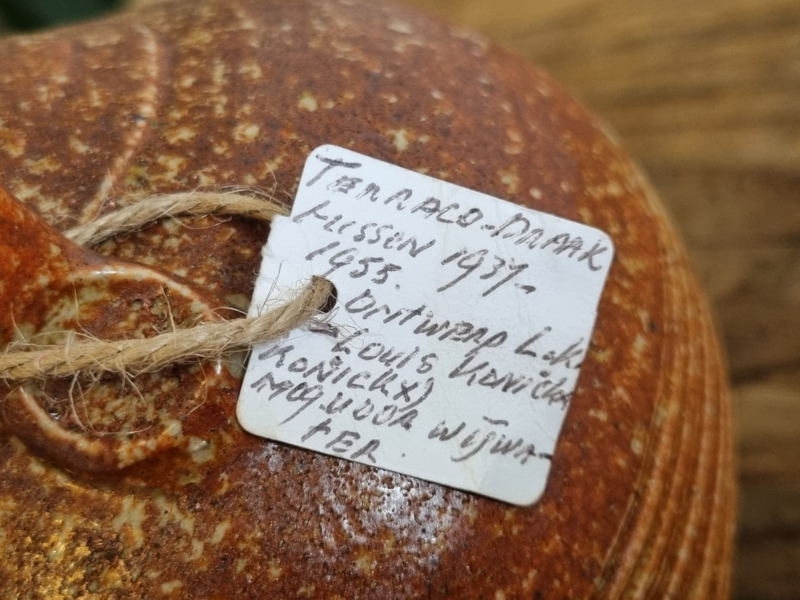 TERRACO-DRAAK
tussen 1937-
1955.
ONTWERP L.K
Louis Konička
KOŇICKX)
MOg. VOOR WIJWA-
TER.